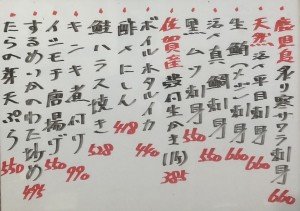 鹿児島釣り寒サワラ刺身 660
天然活〆平目刺身 660
生鯛刺身 660
活〆真鯛刺身 550
黒ムツ刺身 550
佐賀産殻付生かき(1ヶ) 385
ボイルホタルイカ 440
酢〆にしん 418
鮭ハラス焼き 528
キンキ煮付け 990
イシモチ唐揚げ 550
するめいかのわた炒め 495
たらの芽天ぷら 550